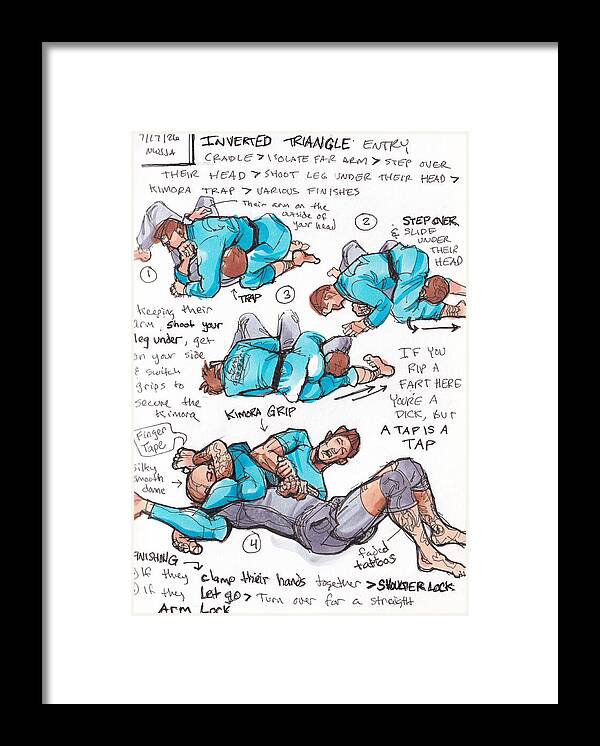 7/17/26
NWJJA
INVERTED TRIANGLE ENTRY
CRADLE > ISOLATE FAR ARM > STEP OVER
THEIR HEAD > SHOOT LEG UNDER THEIR HEAD >
KIMORA TRAP > VARIOUS FINISHES
Their arm on the
outside of
your head
1
TRAP
2
STEP OVER
& SLIDE
UNDER
THEIR
HEAD
3
keeping their
arm, shoot your
leg under, get
on your side
& switch
grips to
secure the
Kimora
IF YOU
RIP A
FART HERE
YOU'RE A
DICK, BUT
A TAP IS A
TAP
KIMORA GRIP
Finger
Tape
silky
smooth
dome
4
faded
tattoos
FINISHING
) If they clamp their hands together > SHOULDER LOCK
) If they Let go > Turn over for a straight
Arm Lock